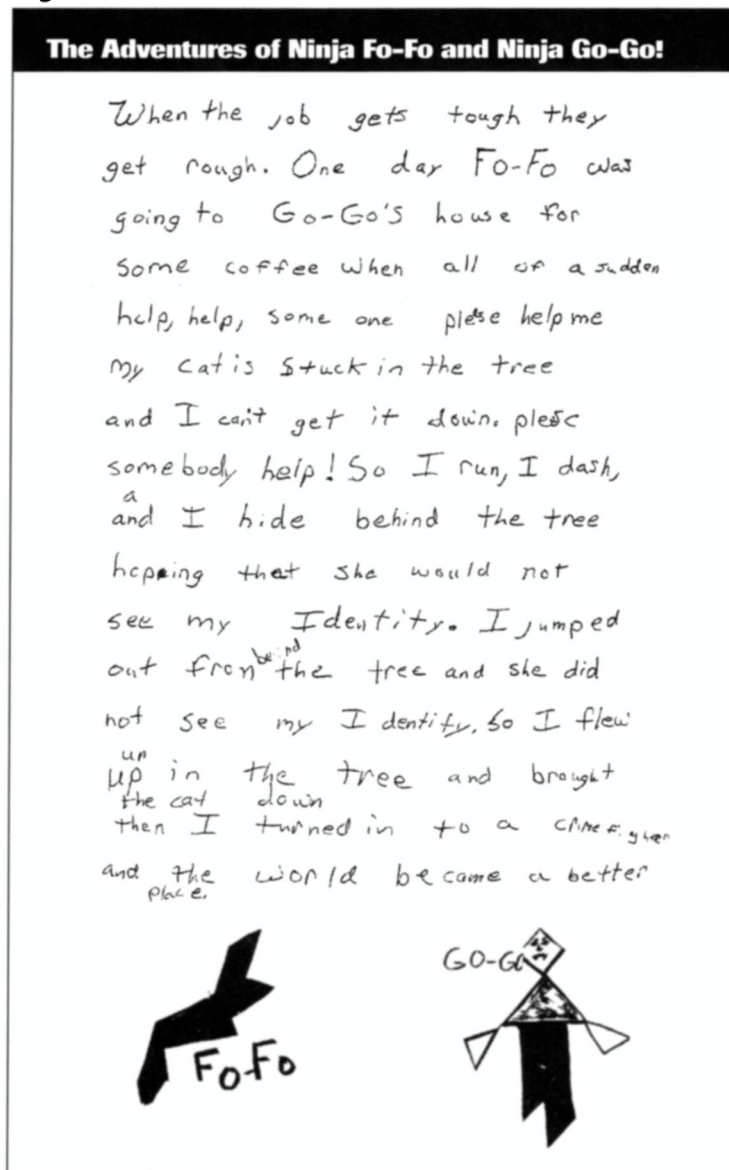 The Adventures of Ninja Fo-Fo and Ninja Go-Go!
When the job gets tough they
get rough. One day Fo-Fo was
going to Go-Go's house for
some coffee when all of a sudden
help, help, some one plese help me
my cat is stuck in the tree
and I can't get it down. plese
somebody help! So I run, I dash,
a
and I hide behind the tree
hopping that she would not
see my Identity. I jumped
behind
out from the tree and she did
not see my Identity. So I flew
up
up in the tree and brought
the cat down
then I turned in to a crime
and the world became a better
place.
GO-GO
Fo-Fo